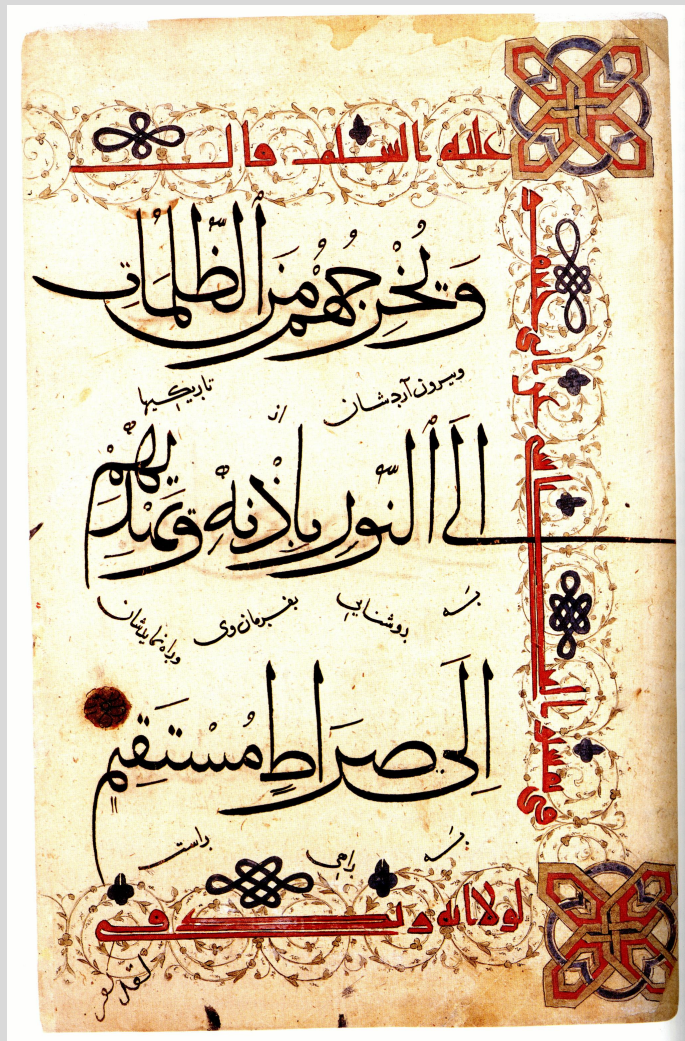 عليه السلم قال
وَيُخْرِجُهُمْ مِنَ الظُّلُمَاتِ
وبیرون آردشان از تاریکیها
اِلَى النُّورِ بِاِذْنِهِ وَيَهْدِيهِمْ
به روشنایی بفرمان وی وبراه نمایدشان
اِلَى صِرَاطٍ مُسْتَقِيمٍ
به راهی راست
لولا ايه في
لقد كفر